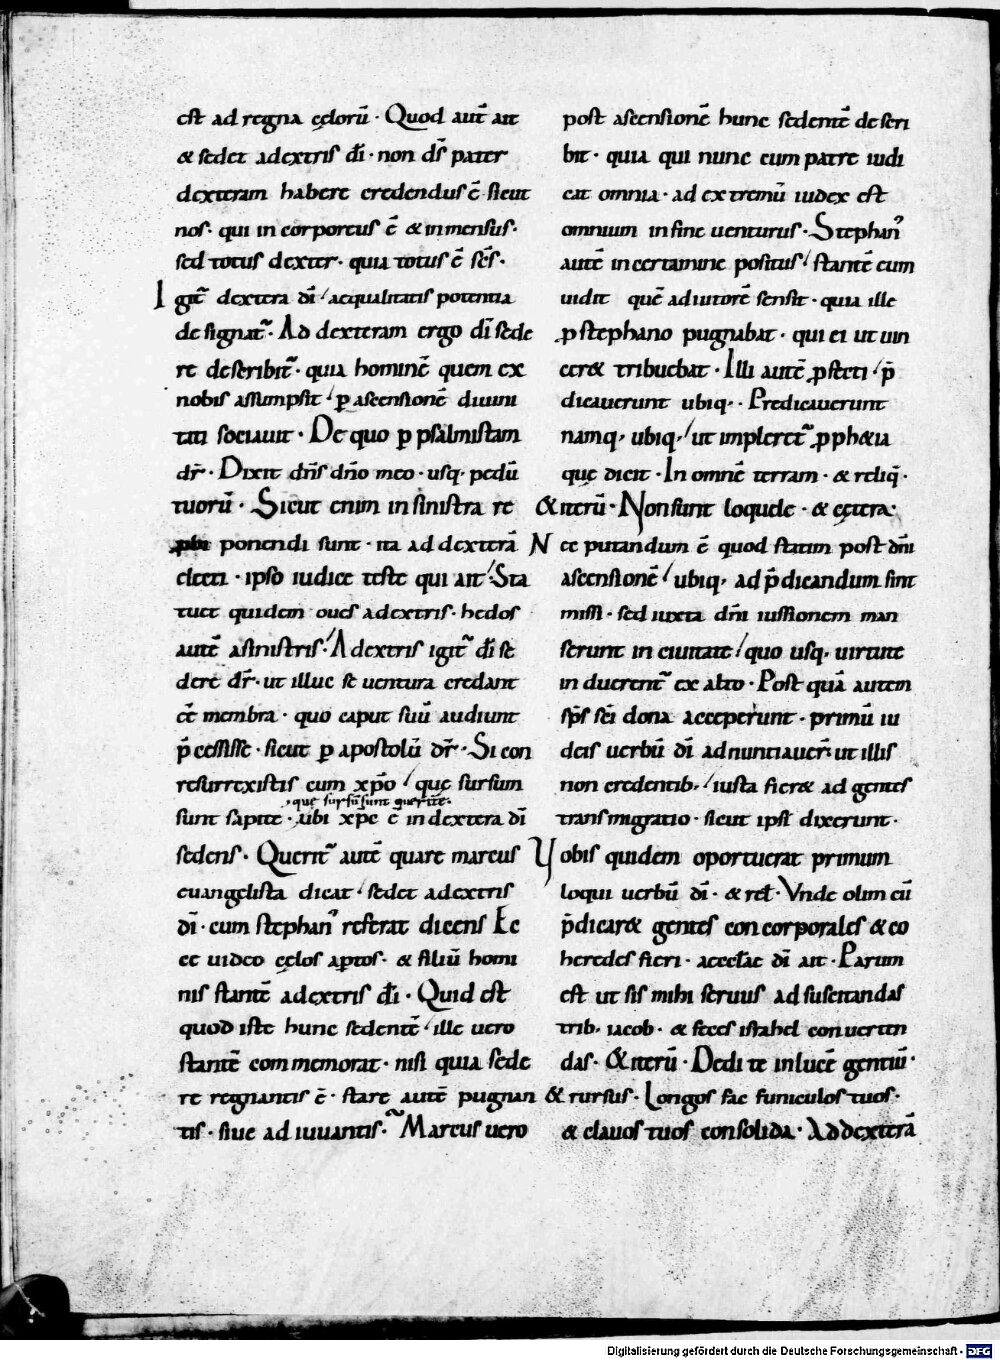 est ad regna cęlorū · Quod aut̄ ait
& sedet adextris dī · non ds̄ pater
dexteram habere credendus ē sicut
nos · qui incorporeus ē & inmensus ·
sed totus dexter · quia totus ē sēs ·
Igit̄ dextera dn̄i / aequalitatis potentia
designat̄ · Ad dexteram ergo dī sede
re describit̄ · quia hominē quem ex
nobis assumpsit / p ascensionē diuini
tati sociauit · De quo p psalmistam
dr̄ · Dixit dn̄s dn̄o meo · usq, pedū
tuorū · Sicut enim in sinistra re
ponendi sunt · ita ad dexterā
electi · ipso iudice teste qui ait / Sta
tuet quidem oues adextris · hedos
autē asinistris / Adextris igit̄ dī se
dere dr̄ · ut illuc se uentura credant
eē membra · quo caput suū audiunt
p̄cessisse · sicut p apostolū dr̄ · Si con
resurrexistis cum xp̄o / quę sursum
· quę sursū sunt querite ·
sunt sapite · ubi xpc ē in dextera dī
sedens · Querit̄ autē quare marcus
euangelista dicat / sedet adextris
dī · cum stephan' referat dicens Ec
ce uideo cęlos aptos · & filiū homi
nis stantē adextris dī · Quid est
quod iste hunc sedentē / ille uero
stantē commemorat · nisi quia sede
re regnantis ē · stare autē pugnan
tis · siue adiuuantis · Marcus uero
post ascensionē hunc sedentē descri
bit · quia qui nunc cum patre iudi
cat omnia · ad extremū iudex est
omnium in fine uenturus · Stephan'
autē incertamine positus / stantē cum
uidit quē adiutorē sensit · quia ille
p stephano pugnabat · qui ei ut uin
cer& tribuebat · Illi autē pfecti / p̄
dicauerunt ubiq, · Predicauerunt
namq, ubiq, / ut impleret̄ pph&ia
quę dicit · In omnē terram · & reliq̄ ·
& iterū · Non sunt loquele · & cętera ·
Nec putandum ē quod statim post dn̄i
ascensionē / ubiq, ad p̄dicandum sint
missi · sed iuxta dn̄i iussionem man
serunt in ciuitate / quo usq, uirtute
induerent̄ ex alto · Post quā autem
sp̄s sc̄i dona acceperunt · primū iu
deis uerbū dī adnuntiauer̄ · ut illis
non credentib, / iusta fier& ad gentes
transmigratio · sicut ipsi dixerunt ·
Vobis quidem oportuerat primum
loqui uerbū dī · & rel̄ · Vnde olim cū
p̄dicar& gentes concorporales & co
heredes fieri · accclac dī ait · Parum
est ut sis mihi seruus ad suscitandas
trib, iacob · & feces israhel conuerten
das · & iterū · Dedi te in lucē gentiū ·
& rursus · Longos fac funiculos tuos ·
& clauos tuos consolida · Ad dexterā
Digitalisierung gefördert durch die Deutsche Forschungsgemeinschaft - DFG